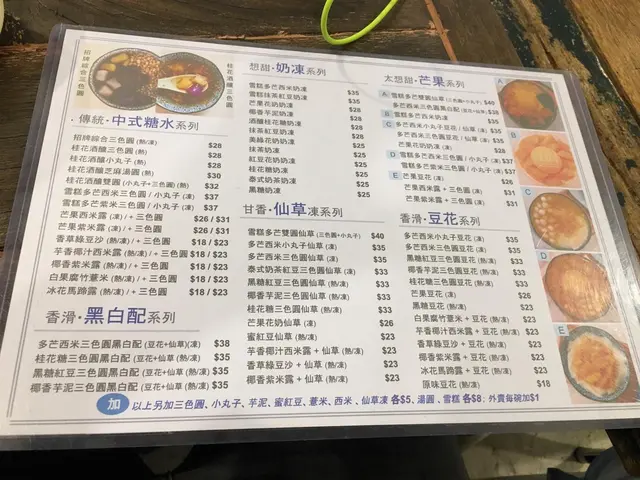 招牌綜合三色圓
桂花酒釀三色圓
傳統·中式糖水系列
招牌綜合三色圓 (熱/凍) $28
桂花酒釀三色圓 (熱) $28
桂花酒釀小丸子 (熱) $28
桂花酒釀芝麻湯圓 (熱) $30
桂花酒釀雙圓 (小丸子+三色圓) (熱) $32
雪糕多芒西米三色圓 / 小丸子 (凍) $37
雪糕多芒紫米三色圓 / 小丸子 (凍) $37
芒果西米露 (凍) / + 三色圓 $26 / $31
芒果紫米露 (凍) / + 三色圓 $26 / $31
香草綠豆沙 (熱/凍) / + 三色圓 $18 / $23
芋香椰汁西米露 (熱/凍) / + 三色圓 $18 / $23
椰香紫米露 (熱/凍) / + 三色圓 $18 / $23
白果腐竹薏米 (熱/凍) / + 三色圓 $18 / $23
冰花馬蹄露 (熱/凍) / + 三色圓 $18 / $23
香滑·黑白配系列
多芒西米三色圓黑白配 (豆花+仙草)(凍) $38
桂花糖三色圓黑白配 (豆花+仙草) (熱/凍) $35
黑糖紅豆三色圓黑白配 (豆花+仙草) (熱/凍) $35
椰香芋泥三色圓黑白配 (豆花+仙草) (熱/凍) $35
想甜·奶凍系列
雪糕多芒西米奶凍 $35
雪糕抹茶紅豆奶凍 $35
芒果花奶奶凍 $28
椰香芋泥奶凍 $28
酒釀桂花糖奶凍 $28
抹茶紅豆奶凍 $28
美綠花奶凍 $25
抹茶奶凍 $25
紅豆花奶奶凍 $25
桂花糖奶凍 $25
泰式奶茶奶凍 $25
黑糖奶凍 $25
甘香·仙草凍系列
雪糕多芒雙圓仙草 (三色圓+小丸子) $40
多芒西米小丸子仙草 (凍) $35
多芒西米三色圓仙草 (凍) $35
泰式奶茶紅豆三色圓仙草 (凍) $33
黑糖紅豆三色圓仙草 (熱/凍) $33
椰香芋泥三色圓仙草 (熱/凍) $33
桂花糖三色圓仙草 (熱/凍) $33
芒果花奶仙草 (凍) $26
蜜紅豆仙草 (熱/凍) $23
芋香椰汁西米露 + 仙草 (熱/凍) $23
香草綠豆沙 + 仙草 (熱/凍) $23
椰香紫米露 + 仙草 (熱/凍) $23
太想甜·芒果系列
A 雪糕多芒雙圓仙草 (三色圓+小丸子) $40
多芒西米三色圓黑白配 (豆花+仙草) (凍) $38
B 雪糕多芒西米奶凍 $35
C 多芒西米小丸子豆花 / 仙草 (凍) $35
多芒西米三色圓豆花 / 仙草 (凍) $35
芒果花奶奶凍 $28
D 雪糕多芒西米三色圓 / 小丸子 (凍) $37
雪糕多芒紫米三色圓 / 小丸子 (凍) $37
E 芒果豆花 (凍) $26
芒果西米露 + 三色圓 (凍) $31
芒果紫米露 + 三色圓 (凍) $31
香滑·豆花系列
多芒西米小丸子豆花 (凍) $35
多芒西米三色圓豆花 (凍) $35
黑糖紅豆三色圓豆花 (熱/凍) $33
椰香芋泥三色圓豆花 (熱/凍) $33
桂花糖三色圓豆花 (熱/凍) $33
芒果豆花 (凍) $26
黑糖豆花 (熱/凍) $23
白果腐竹薏米 + 豆花 (熱/凍) $23
芋香椰汁西米露 + 豆花 (熱/凍) $23
香草綠豆沙 + 豆花 (熱/凍) $23
椰香紫米露 + 豆花 (熱/凍) $23
冰花馬蹄露 + 豆花 (熱/凍) $23
原味豆花 (熱/凍) $18
A
B
C
D
E
加 以上另加三色圓、小丸子、芋泥、蜜紅豆、薏米、西米、仙草凍 各$5、湯圓、雪糕 各$8; 外賣每碗加$1